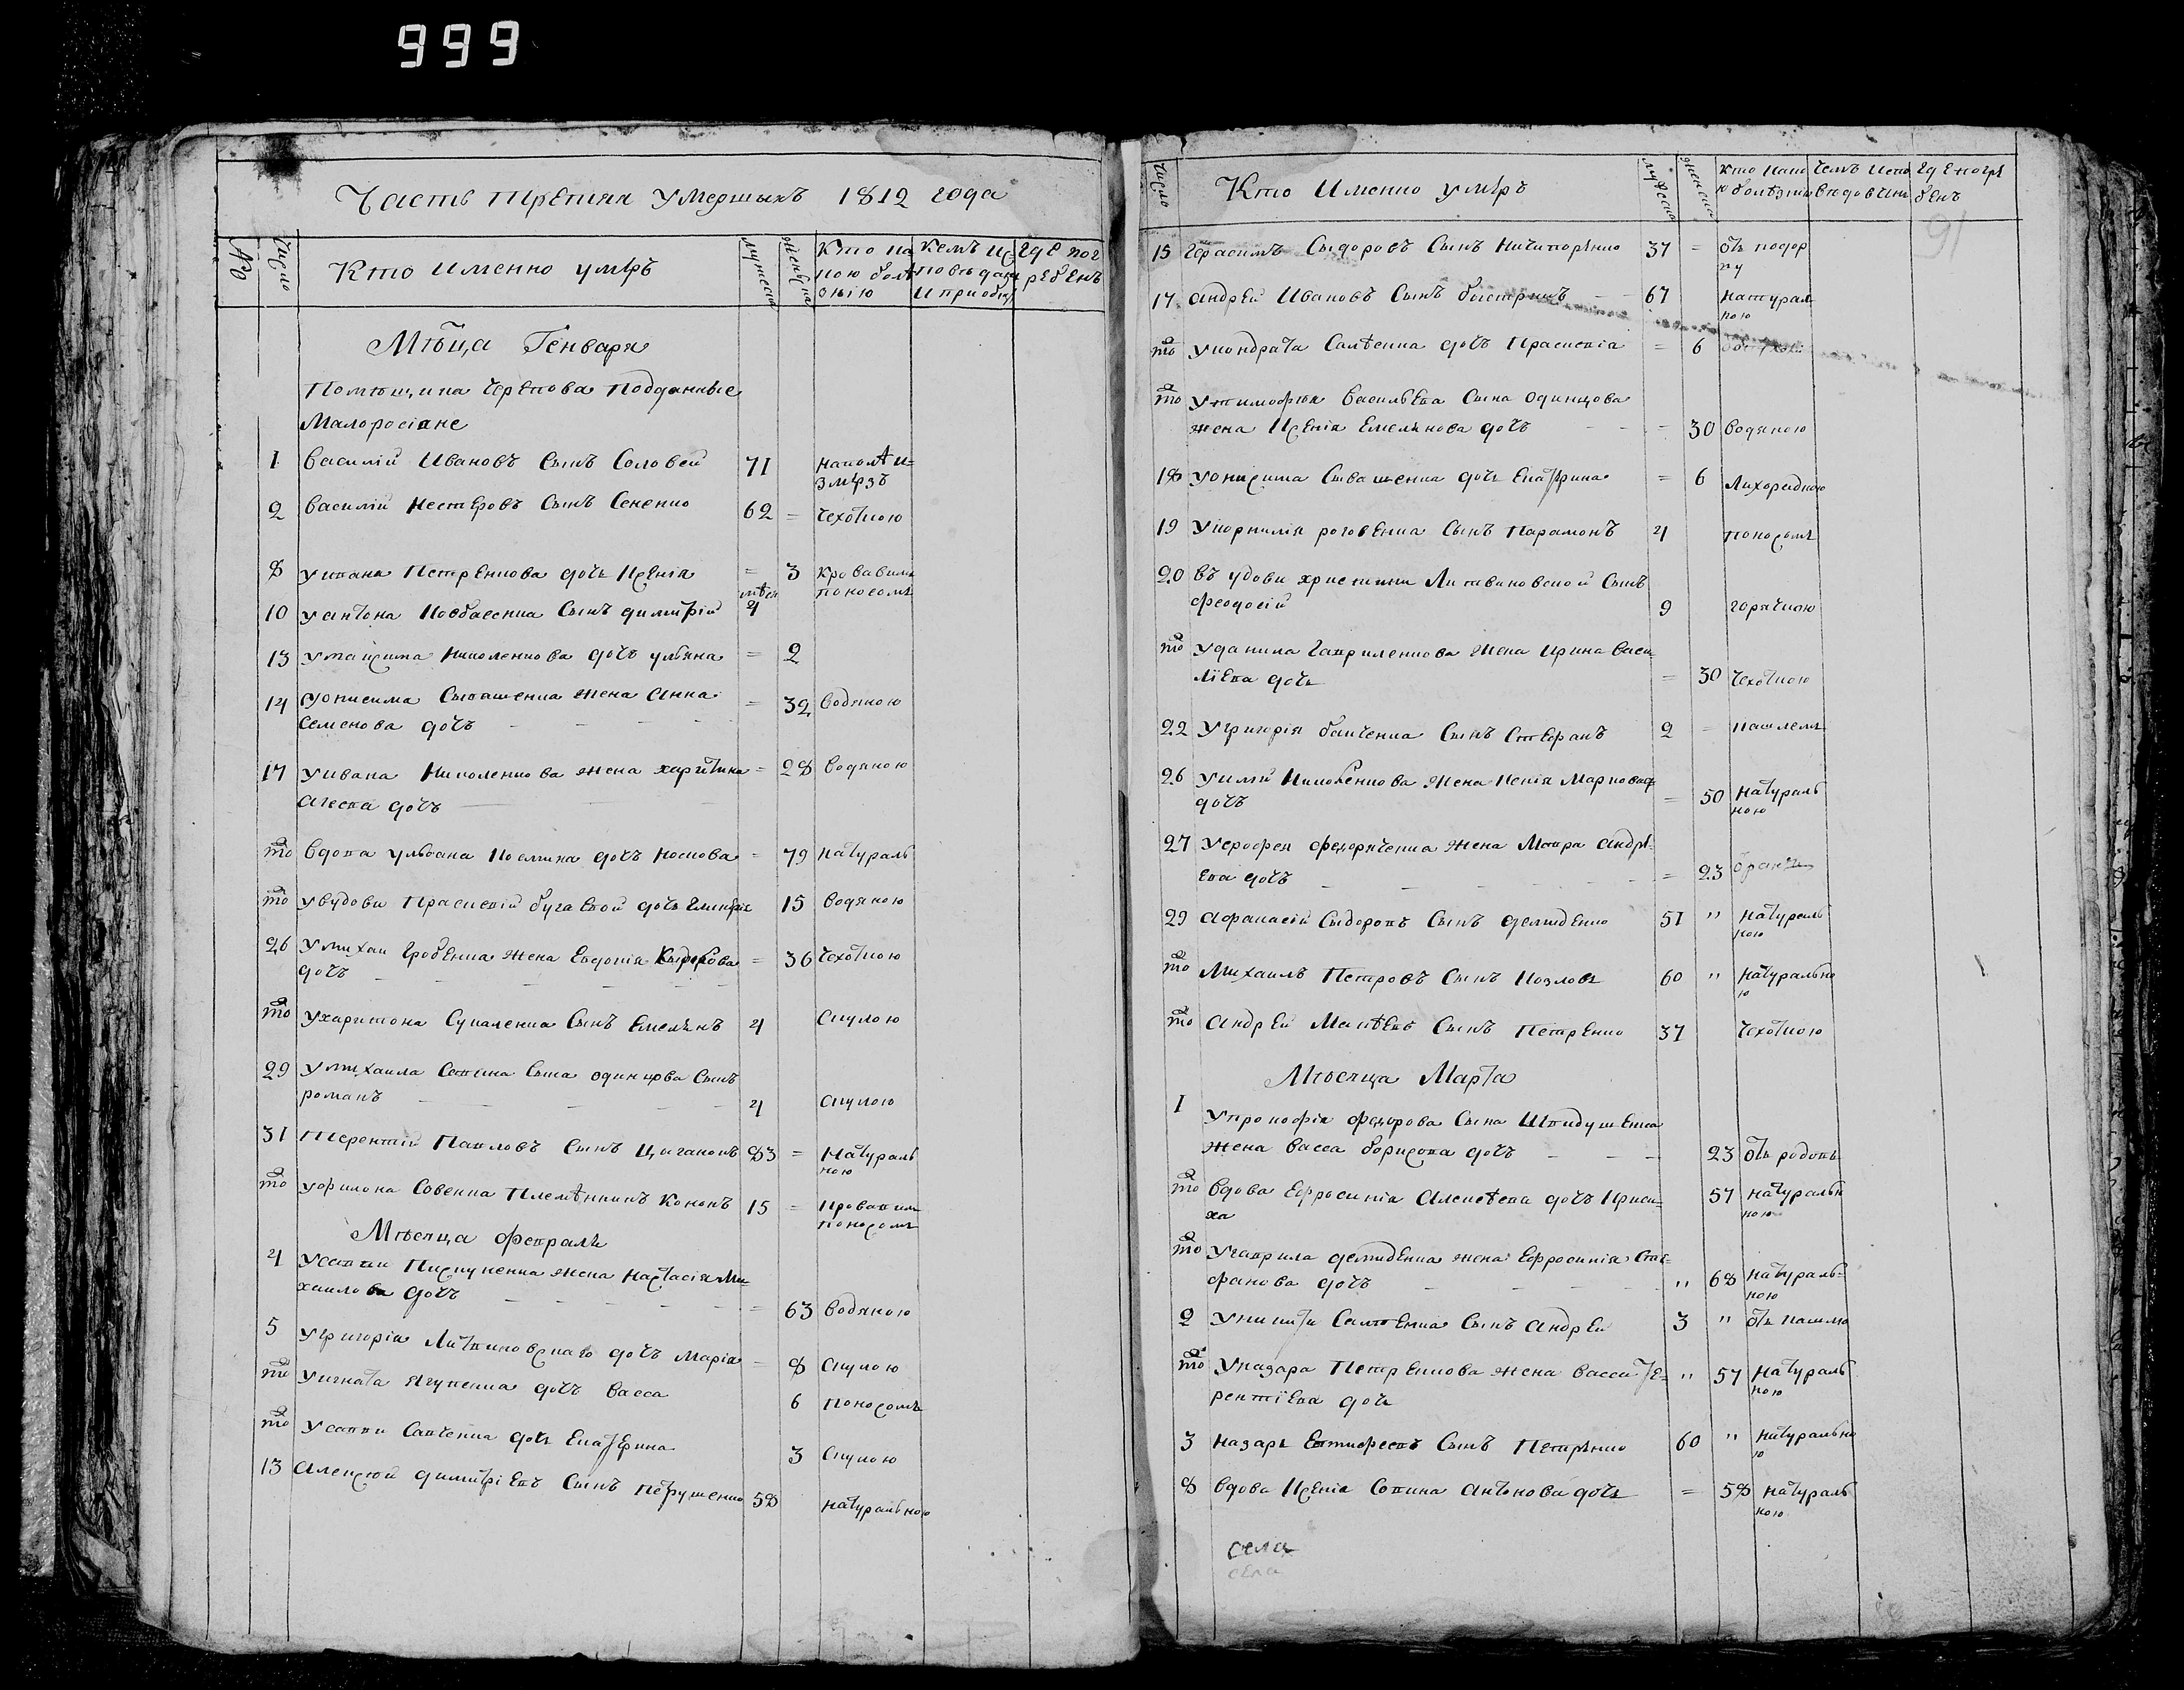 999
Часть третия умершыхъ 1812 года
№
число
Кто именно умѣръ
мужеска
женска
Кто ка
кою болѣ
знію
кемъ ис
повѣдан
и приобщ
где пог
ребенъ
Мц̃а Генваря
Помѣщика Черткова Подданные
Малоросіяне
1 василій Ивановъ Сынъ Соловей 71
2 василій Нестеровъ Сынъ Сененко 62 = Чехоткою
8 у ивана Петренкова дочь Ксенія = 3 кровавимъ
поносомъ
10 у антона Ковбасенка Сынъ димитрій мѣся 4
13 у максима Николенкова дочъ ульяна = 2
14 у онисима Сывашенка жена анна = 32 водяною
семенова дочъ
17 у ивана Николенкова жена харитина = 28 водяною
дочъ
то вдова ульяна дочъ Носкова = 79 натураль
то у вдови Праскевій бугаевой дочь 15 водяною
26 у михаи Гробенка жена Евдокія = 36 Чехоткою
дочъ
то у харитона Сукаленка Сынъ Емельянъ 4 Скулою
29 у михаила Савина Сына одинцова Сынъ
романъ 4 Скулою
31 Терентий Павловъ Сынъ Цигановъ 83 = Натураль
ною
то у филона Совенка племѣнникъ Кононъ 15 = кровавим
поносомъ
Мѣсяца февраля
4 у савви Пискуненка жена настасія Ми
хаилова дочъ = 63 водяною
5 у григорія Литвиновскаго дочъ Марія = 8 Скулою
то у игната Ягупенка дочъ васса 6 поносомъ
то у савви Савченка дочь Екатерина 3 Скулою
13 алексей димитріевъ Сынъ Петрушенко 58 натуральною
число
Кто Именно умѣръ
мужеска
женска
Кто како
ю болѣзнію
Чемъ испо
ведовани
где погре
бенъ
91
15 герасимъ Сыдоровъ Сынъ Ничипоренко 37 = отъ подор
ву
17 андрей Ивановъ Сынъ быстрикъ 67 натурал
ною
то у кондрата Савѣенка дочъ Праскевія = 6
то у тимофѣя васильева Сына Одинцова
жена Ксенія Емелянова дочъ = 30 водяною
18 у онисима Сывашенка дочь Екатерина = 6 Лихорадкою
19 у корнилія роговенка Сынъ Парамонъ 4 поносомъ
20 въ удови христини Литвиновской Сынъ
феодосій 9 горячкою
то у данила Гавриленкова жена ирина васи
ліева дочь = 30 Чехоткою
22 у григорія баиченка Сынъ Стефанъ 2 = кашлемъ
26 Николенкова жена Ксенія Маркова
дочъ = 50 натураль
ною
27 у ерофея федорченка жена андрѣ
ева дочъ = 23
29 афанасій Сыдоровъ Сынъ демиденко 51 " натураль
ною
то Михаилъ Петровъ Сынъ Козловъ 60 " натурально
ю
то андрей Матвѣевъ Сынъ Петренко 37 Чехоткою
Мѣсяца Марта
1 у прокофія федорова Сына Шпидушенка
жена васса борисова дочъ 23 отъ родовъ
то вдова Ефросинія алексѣева дочъ Криси-
ха 57 натуральн
ною
то у гаврила демиденка жена Ефросинія Сте-
фанова дочъ " 68 натураль-
ною
2 у никити Савтенка Сынъ андрей 3 " отъ кашлю
то у назара Петренкова жена васса Те-
рентіева дочь " 57 натураль
ною
3 назаръ Евтифеевъ Сынъ Петрѣнко 60 " натурально
ю
8 вдова Ксенія Совина антонова дочь = 58 натураль
ною
села
села